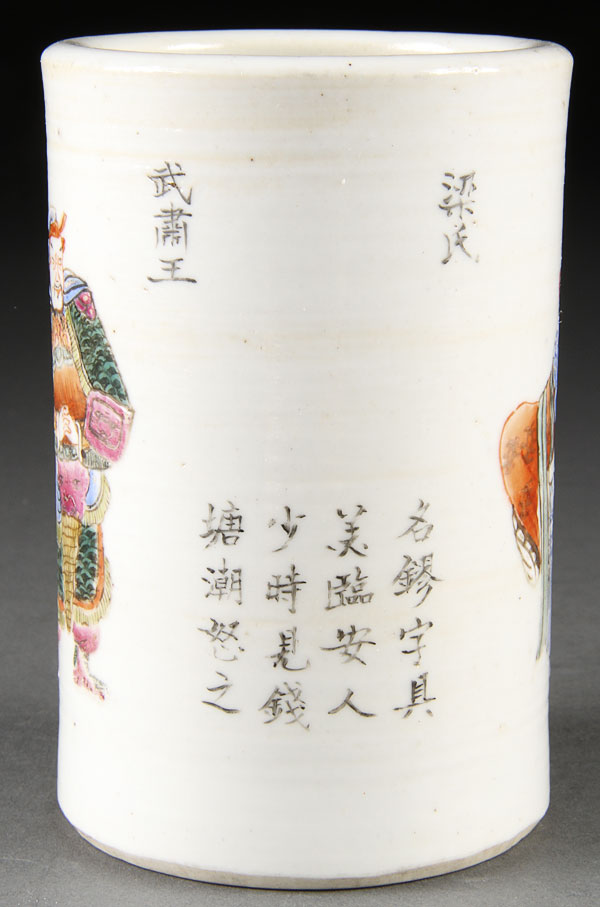 梁氏
武肅王
名鏐字具
美臨安人
少時見錢
塘潮怒之